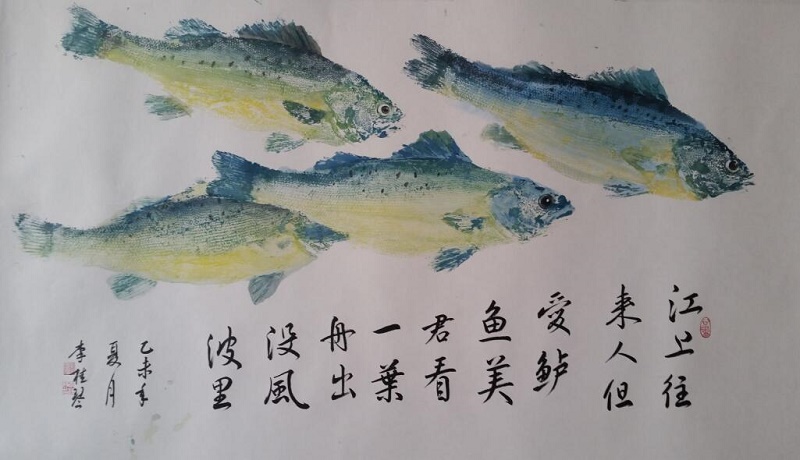 江上往
来人但
愛鲈
鱼美
君看
一葉
舟出
没風
波里
乙未年
夏月
李桂琴